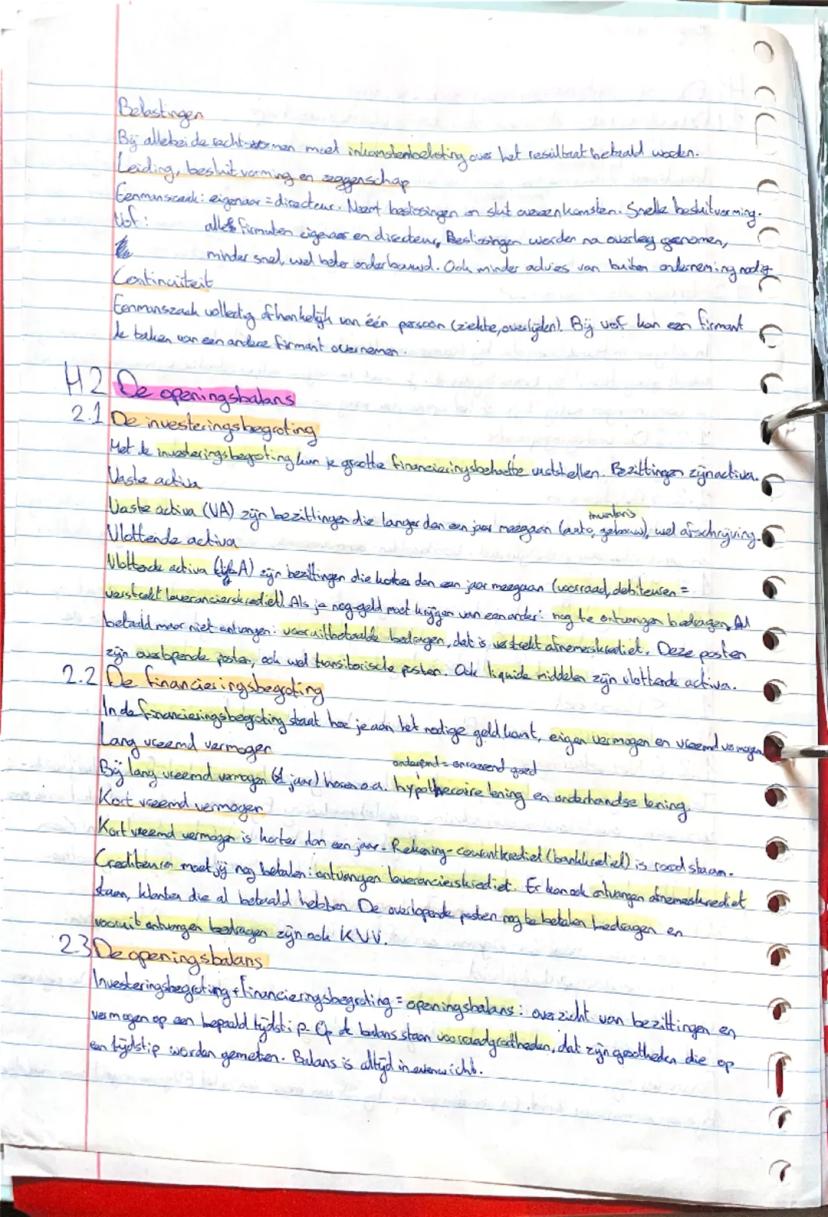 Belastingen
Bij allebei de rechtsvormen moet inkomstenbelasting over het resultaat betaald worden.
Leiding, besluitvorming en zeggenschap
Eenmanszaak: eigenaar = directeur. Neemt beslissingen en sluit overeenkomsten. Snelle besluitvorming.
Vof: alle firmanten eigenaar en directeur, Beslissingen worden na overleg genomen,
minder snel, wel beter onderbouwd. Ook minder advies van buiten onderneming nodig
Continuïteit
Eenmanszaak volledig afhankelijk van één persoon (ziekte, overlijden). Bij vof kan een firmant
de taken van een andere firmant overnemen.
H2 De openingsbalans
2.1 De investeringsbegroting
Met de investeringsbegroting kun je grootte financieringsbehoefte vaststellen. Bezittingen zijn activa.
Vaste activa
inventaris
Vaste activa (VA) zijn bezittingen die langer dan een jaar meegaan (auto, gebouw), wel afschrijving.
Vlottende activa
Vlottende activa zijn bezittingen die korter dan een jaar meegaan (voorraad, debiteuren =
verstrekt leverancierskrediet) Als je nog geld moet krijgen van een ander: nog te ontvangen bedragen. Al
betaald maar niet ontvangen: vooruitbetaalde bedragen, dat is verstrekt afnemerskrediet. Deze posten
zijn overlopende posten, ook wel transitorische posten. Ook liquide middelen zijn vlottende activa.
2.2 De financieringsbegroting
In de financieringsbegroting staat hoe je aan het nodige geld komt, eigen vermogen en vreemd vermogen
Lang vreemd vermogen
onderpand = onroerend goed
Bij lang vreemd vermogen (≥1 jaar) horen o.a. hypothecaire lening en onderhandse lening.
Kort vreemd vermogen
Kort vreemd vermogen is korter dan een jaar. Rekening-courantkrediet (bankkrediet) is rood staan.
Crediteuren moet jij nog betalen: ontvangen leverancierskrediet. Er kan ook ontvangen afnemerskrediet
staan, klanten die al betaald hebben. De overlopende posten nog te betalen bedragen en
vooruit ontvangen bedragen zijn ook KVV.
2.3 De openingsbalans
Investeringsbegroting + financieringsbegroting = openingsbalans: overzicht van bezittingen en
vermogen op een bepaald tijdstip. Op de balans staan voorraadgrootheden, dat zijn grootheden die op
een tijdstip worden gemeten. Balans is altijd in evenwicht.